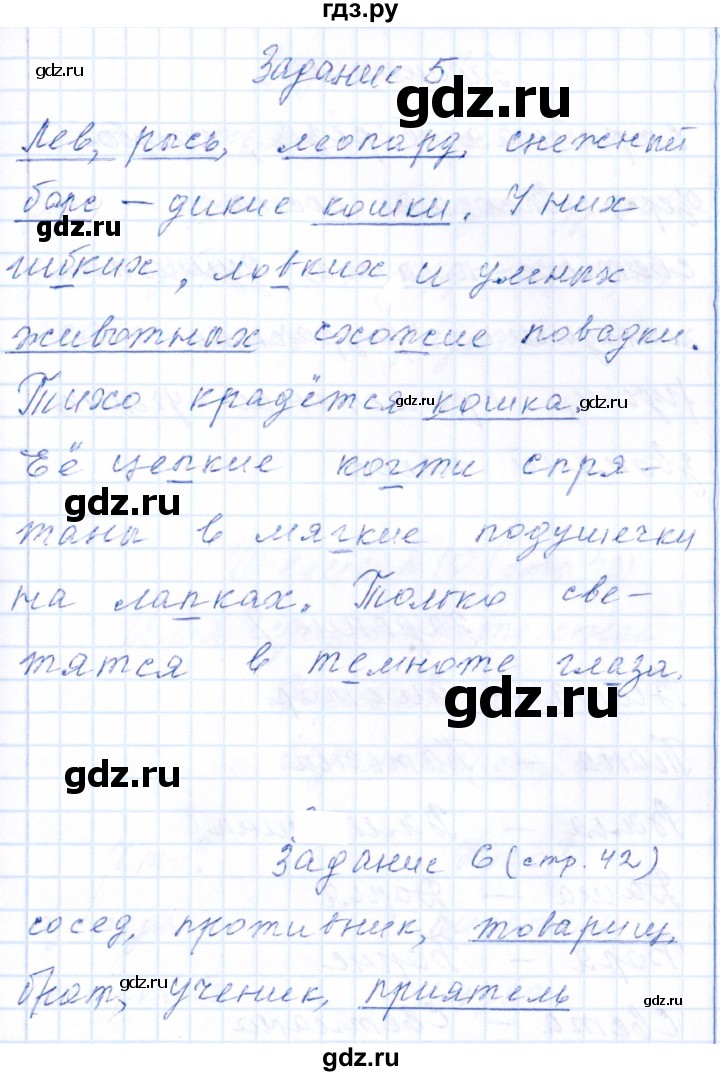 гдз.ру
Задание 5
gdz.ru
gdz.ru
Лев, рысь, леопард, снежный
барс – дикие кошки. У них
gdz.ru
гибких, ловких и умных
животных схожие повадки.
Тихо крадётся кошка.
gdz.ru
gdz.ru
Её цепкие когти спря-
gdz.ru
таны в мягкие подушечки
на лапках. Только све-
тятся в темноте глаза.
gdz.ru
gdz.ru
Задание 6 (стр. 42)
сосед, противник, товарищ,
брат, ученик, приятель
gdz.ru
gdz.ru
gdz.ru